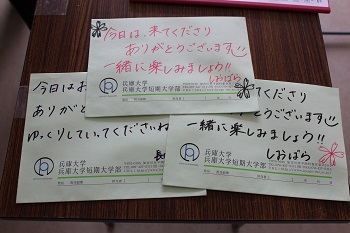 今日は、来てくださり
ありがとうございます
一緒に楽しみましょう!!
しおばら
兵庫大学
兵庫大学短期大学部
今日はお
ありがと
ゆっくりしていってくださいね
兵庫大学
兵庫大学短期大学部
てくださり
ございます
一緒に楽しみましょう!!
しおばら
兵庫大学
兵庫大学短期大学部